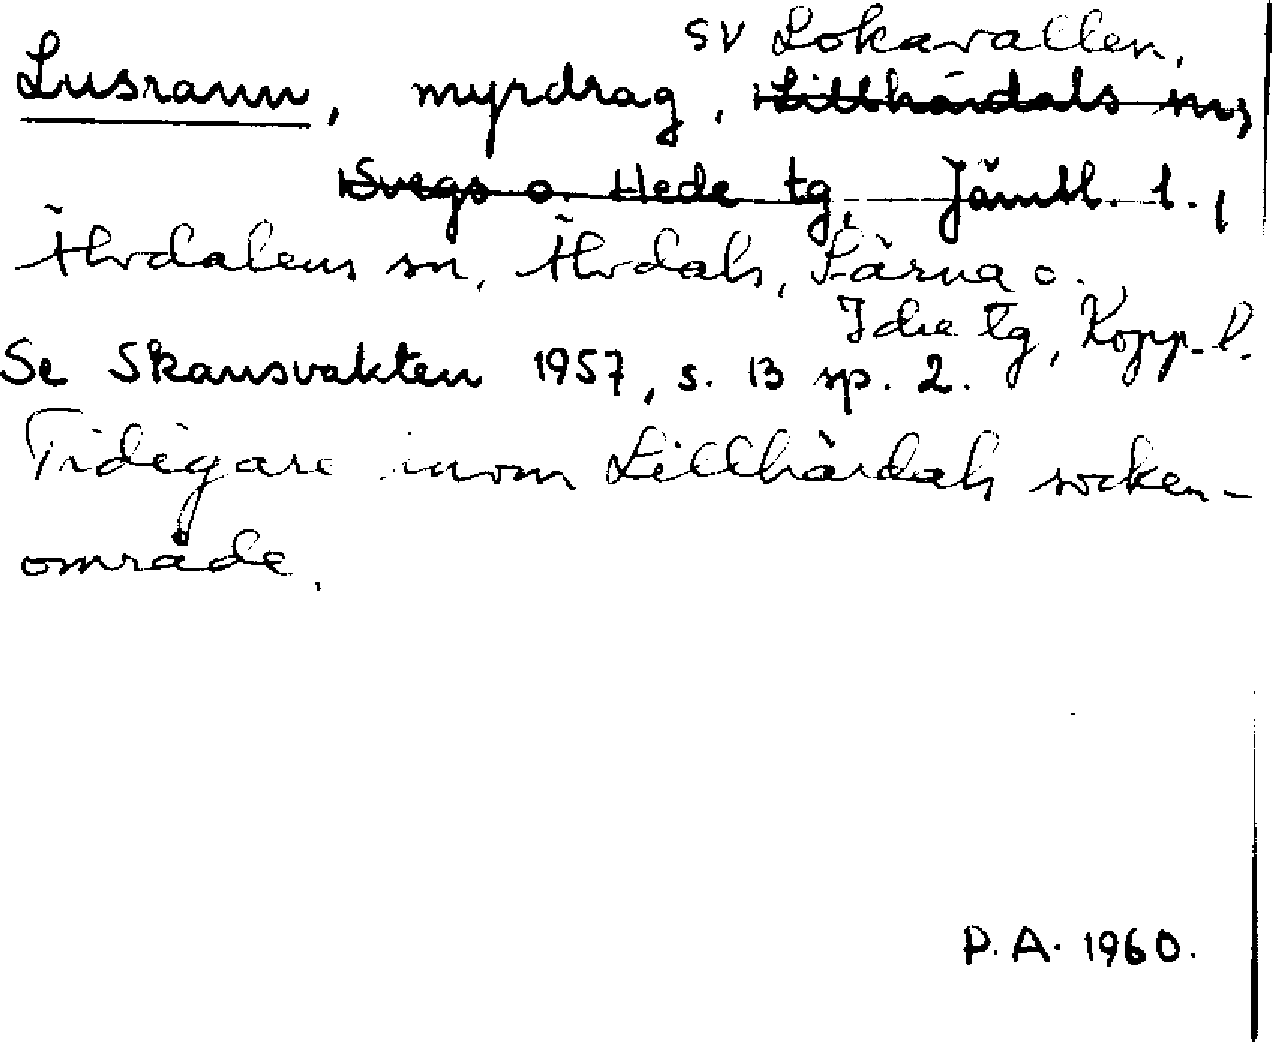 SV Lokavallen,
Lusrann, myrdrag, Lillhärdals sn,
Svegs o. Hede tg, Jämtl. l.,
Älvdalens sn, Älvdals, Särna o.
Idre tg, Kopp. l.
Se Skansvakten 1957, s. 13 sp. 2.
Tidigare inom Lillhärdals socken-
område.
P.A. 1960.